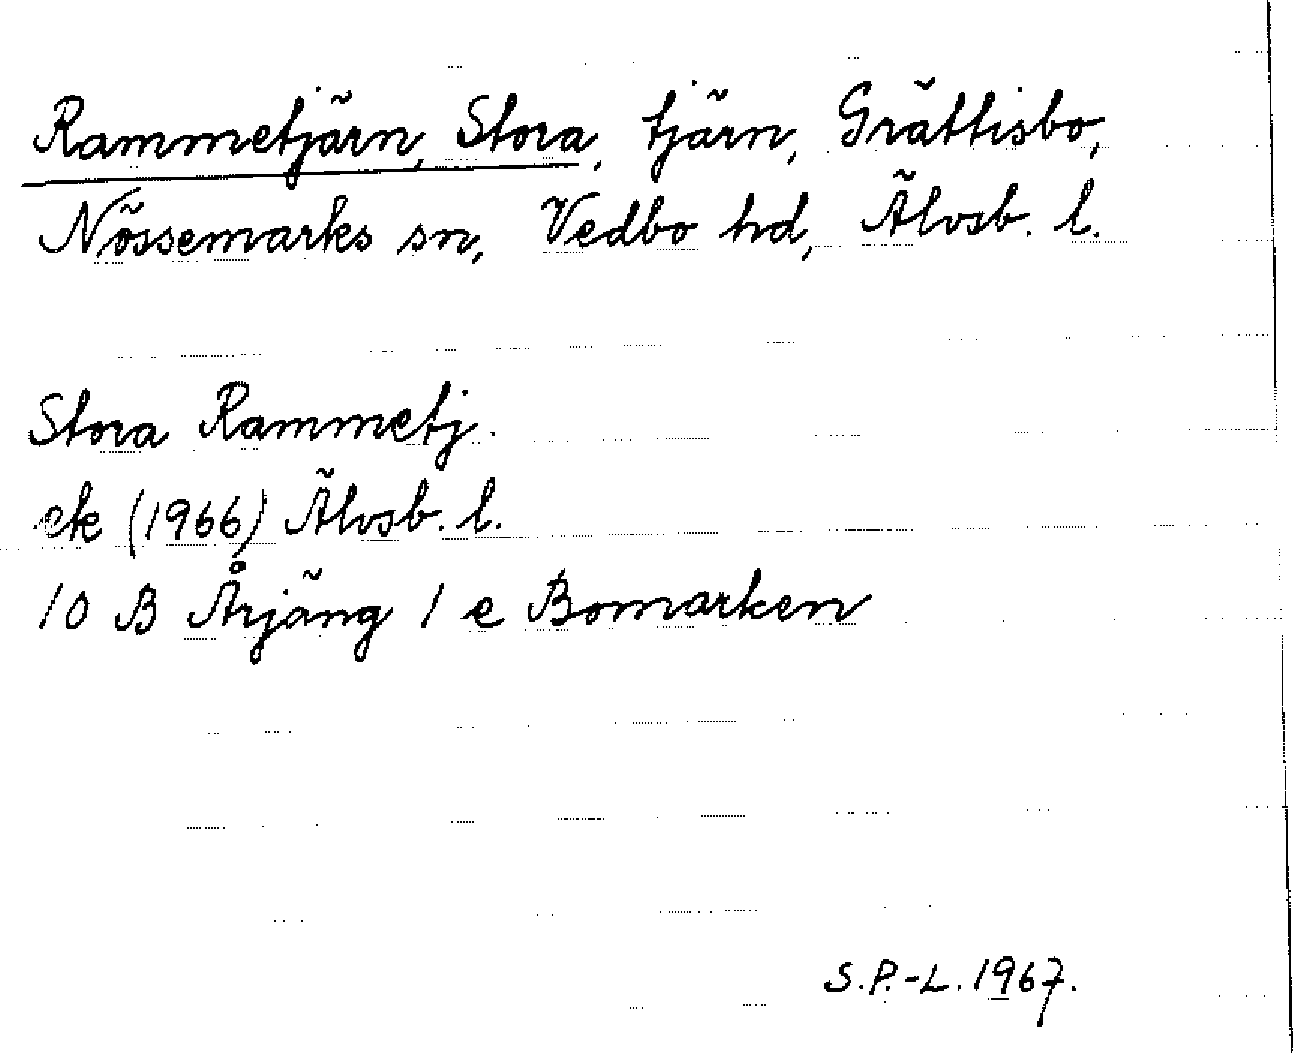 Rammetjärn, Stora, tjärn, Grättisbo,
Nössemarks sn, Vedbo hd, Älvsb. l.
Stora Rammetj.
ek (1966) Älvsb. l.
10 B Årjäng 1 e Bomarken
S.P.-L. 1967.